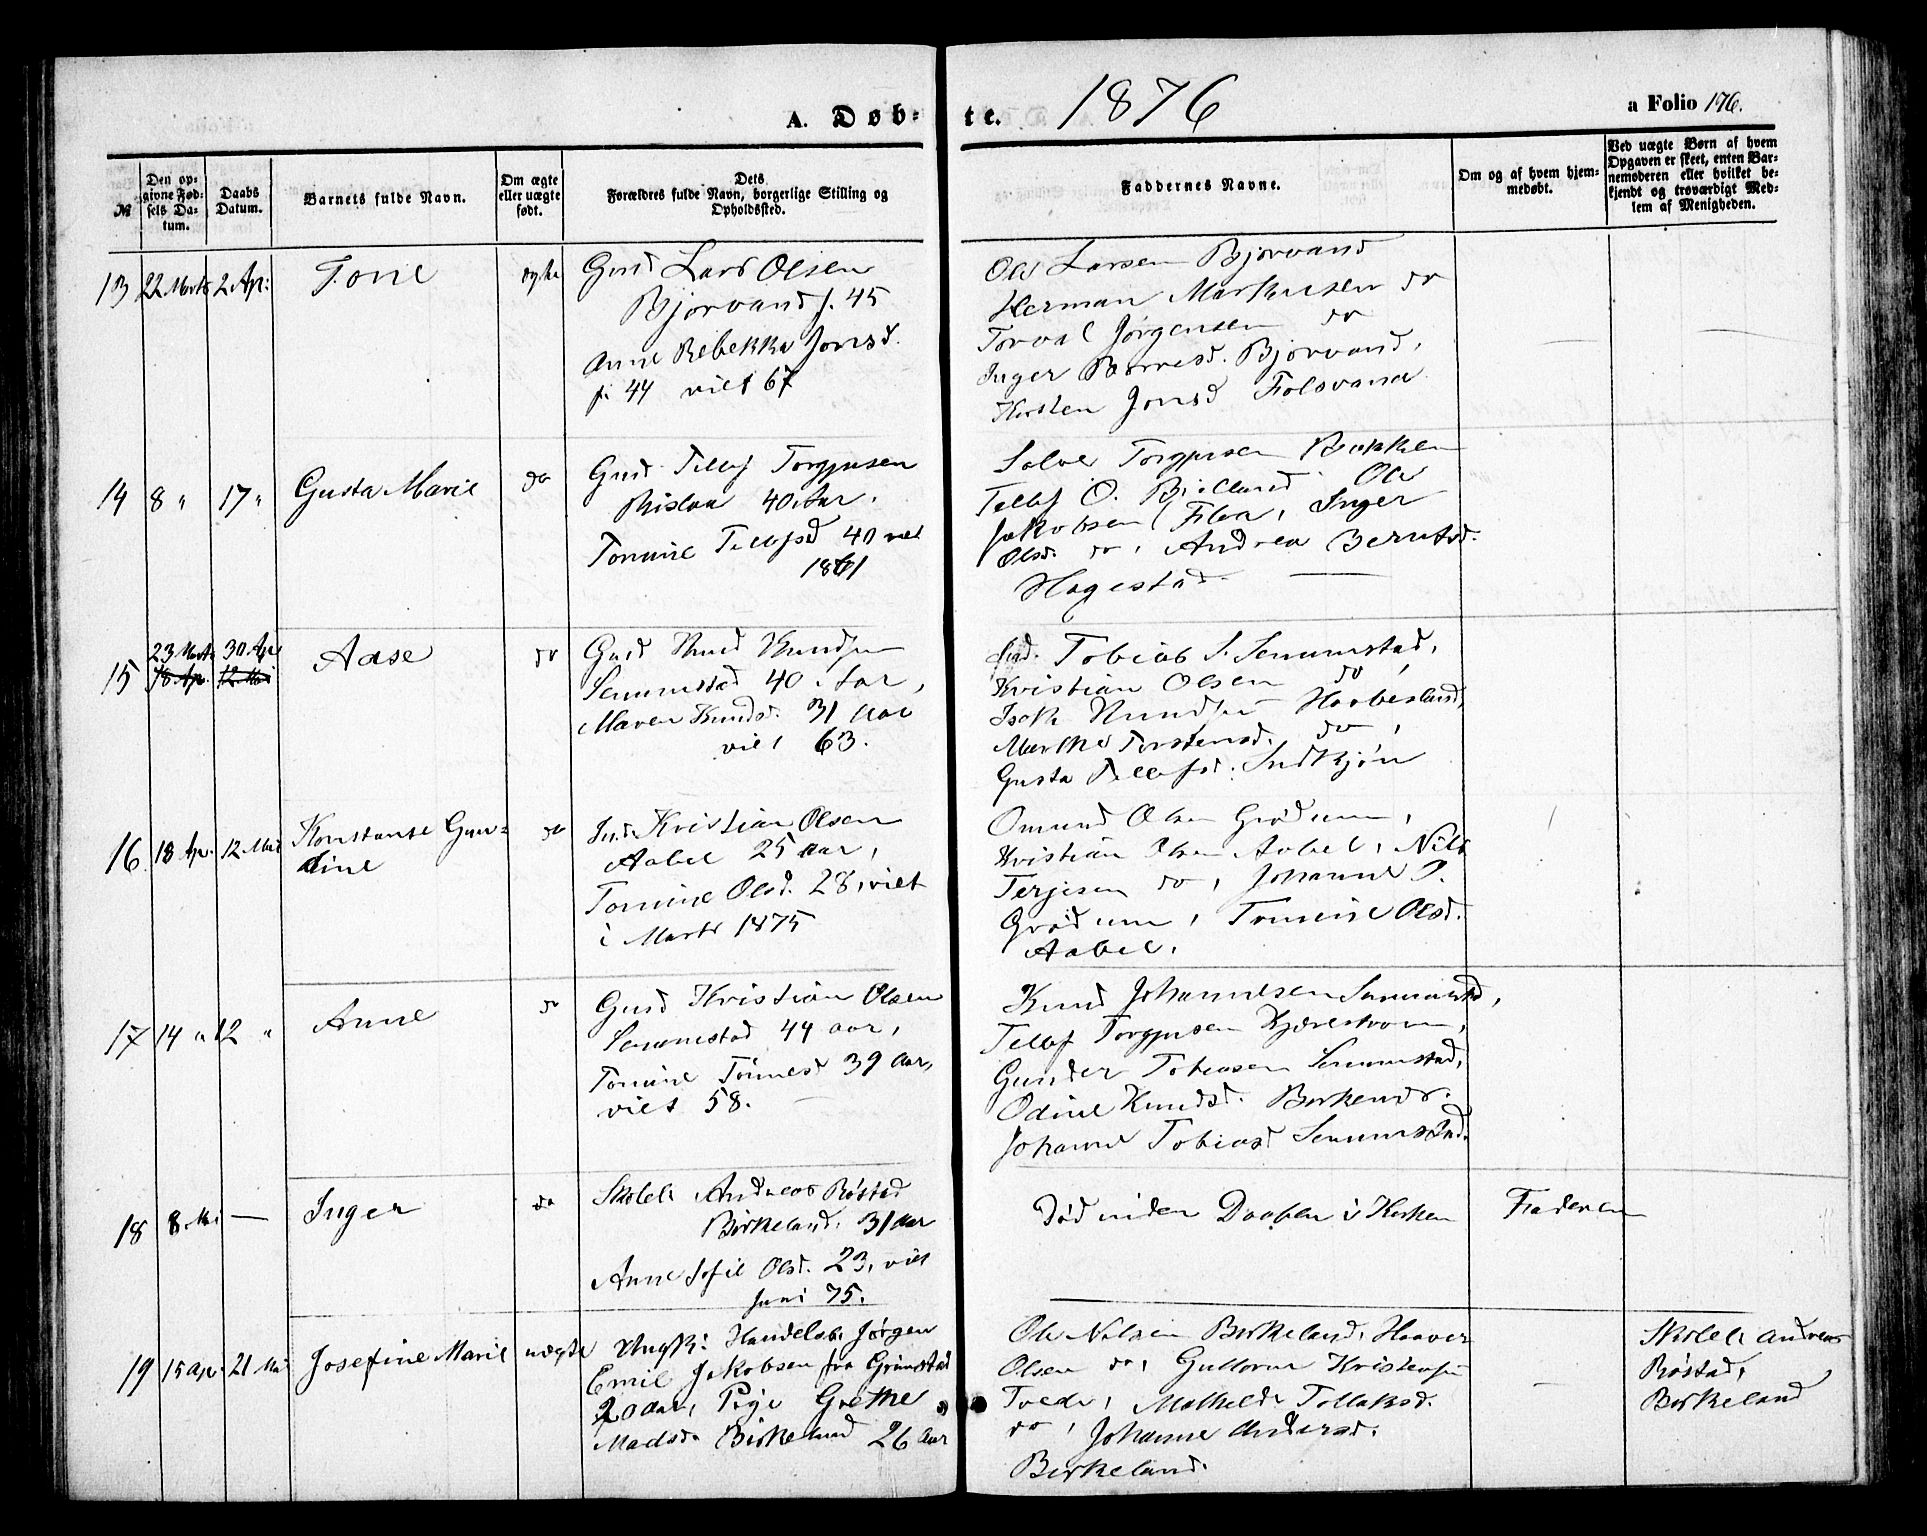 A. Døb-
te.
1876
a Folio 176.
№
Den op-
givne Fød-
sels Da-
tum.
Daabs
Datum.
Barnets fulde Navn.
Om ægte
eller uægte
født.
Dets
Forældres fulde Navn, borgerlige Stilling og
Opholdssted.
Faddernes Navne.
Om og af hvem hjem-
medøbt.
Ved uægte Børn af hvem
Opgaven er skeet, enten Bar-
nemoderen eller hvilket be-
kjendt og troværdigt Med-
lem af Menigheden.
13 22 Marts 2 Apr: Tone ægte
Gusd Lars Olsen
Bjorvand f. 45
Anne Rebekka Jonsd.
f. 44 viet 67
Ole Larsen Bjorvand
Herman Markusen do
Torval Jørgensen do
Inger Barresd. Bjorvand,
Kirsten Jonsd Folsvand
14 8 " 17 " Gusta Marie do
Gusd. Tellef Torgjusen
Rislaa 40 Aar.
Tomine Tellefsd 40 viet
1861
Solve Torgjusen Bakken
Tellef O. Bielland. Ole
Jakobsen Flaa, Inger
Olsd. do, Andrea Berntsd.
Hagestad.
15 23 Marts 30 Apr Aase do
18 Ap. 12 Mai
Gusd Knud Knudsen
Senumstad 40 Aar,
Maren Knudsd. 31 Aar
viet 63.
Gusd. Tobias S. Senumstad,
Kristian Olsen do,
Isak Knudsen Haabesland,
Marthe Torstensd. do,
Gusta Tellefsd. Sudkjøn
16. 18 Apr. 12 Mai Konstanse Gun- do
dine
Ind. Kristian Olsen
Aabel 25 aar,
Tomine Olsd. 28, viet
i Marts 1875
Omund Olsen Grødum,
Kristian Olsen Aabel, Nils
Terjesen do, Johanne O.
Grødum, Tomine Olsd.
Aabel.
17 14 " 12 " Anne do
Gusd Kristian Olsen
Senumstad 44 aar,
Tomine Tønnesd 39 Aar,
viet 58.
Knud Johannesen Senumstad,
Tellef Torgjusen Kjærestrom,
Gunder Tobiasen Senumstad,
Odine Knudsd. Birkenes.
Johanne Tobiasd Senumstad.
18 8 Mai — Inger do
Skolel. Andreas Røstad
Birkeland. 31 Aar
Anne Sofie Olsd. 23, viet
Juni 75.
Død inden Daaben i Kirken
Faderen
19 15 Apr 21 Mai Josefine Marie uægte
Ungk: Handelsb. Jørgen
Emil Jakobsen fra Grimstad
20 aar, Pige Grethe
Madsd. Birkeland 26 Aar
Ole Nilsen Birkeland, Haaver
Olsen do, Gullovm Kristensen
Tvede, Mathilde Tollaksd.
do, Johanne Andersd.
Birkeland.
Skolel. Andreas
Røstad,
Birkeland